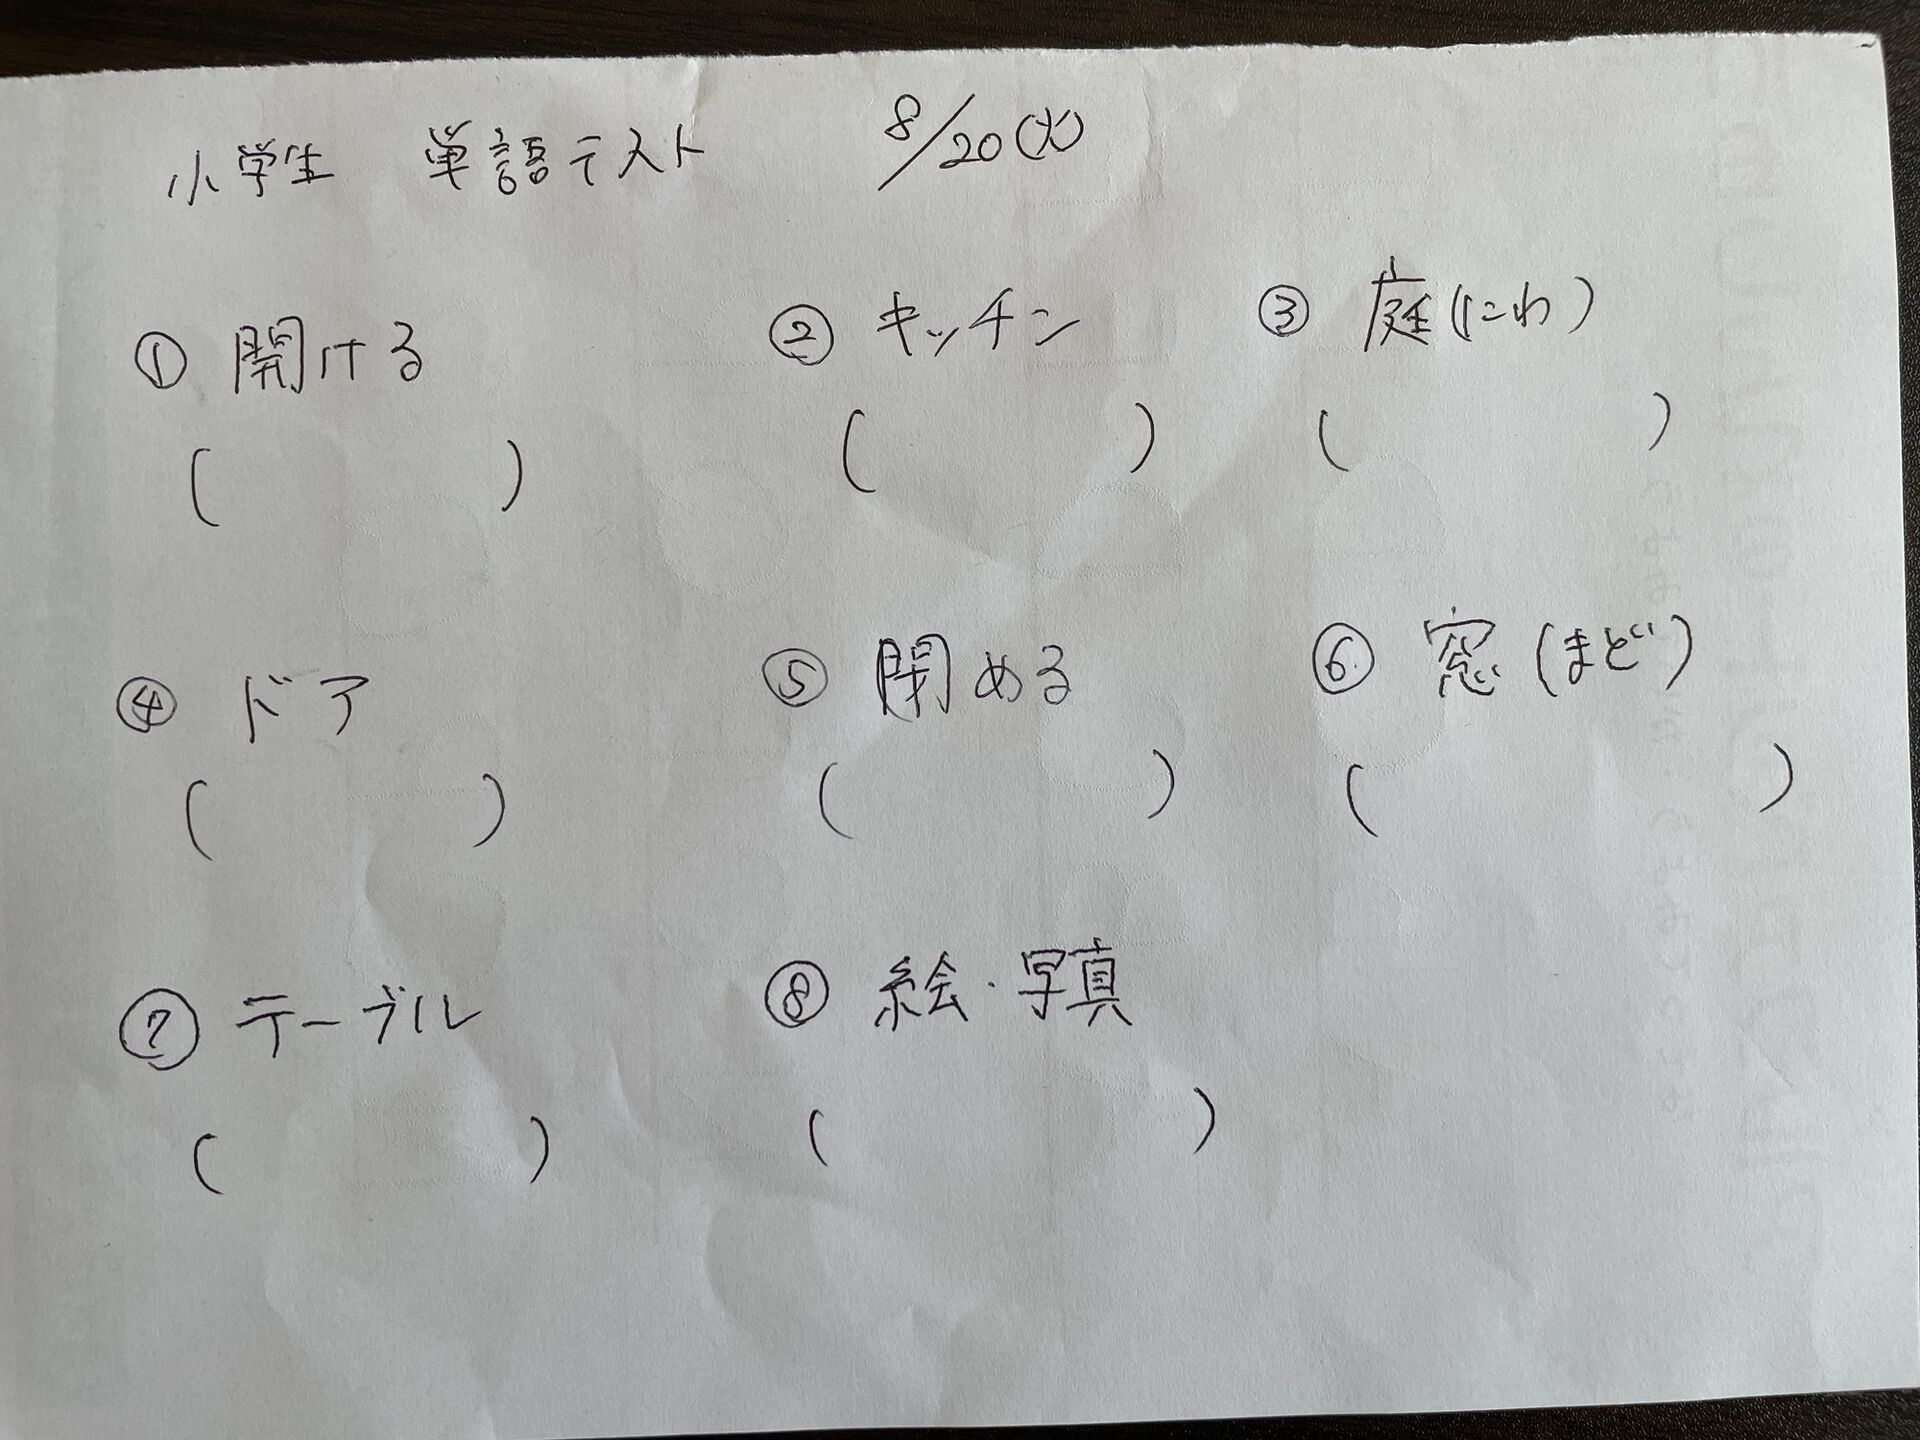 小学生 単語テスト 8/20(火)
① 開ける ② キッチン ③ 庭(にわ)
( ) ( ) ( )
④ ドア ⑤ 閉める ⑥ 窓(まど)
( ) ( ) ( )
⑦ テーブル ⑧ 絵・写真
( ) ( )